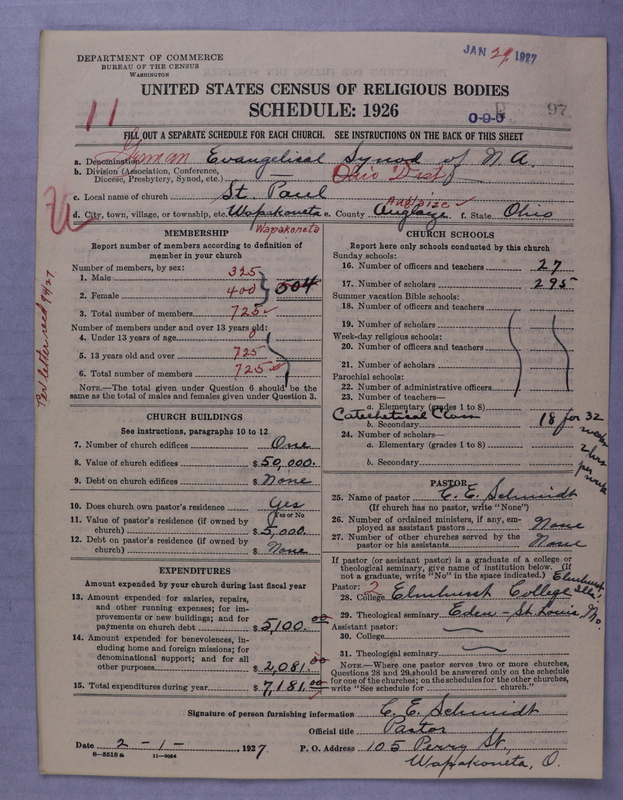 DEPARTMENT OF COMMERCE
BUREAU OF THE CENSUS
WASHINGTON
JAN 29 1927
UNITED STATES CENSUS OF RELIGIOUS BODIES
SCHEDULE: 1926
11
0-9-0
97
FILL OUT A SEPARATE SCHEDULE FOR EACH CHURCH. SEE INSTRUCTIONS ON THE BACK OF THIS SHEET
a. Denomination German Evangelical Synod of N. A.
b. Division (Association, Conference, Diocese, Presbytery, Synod, etc.) — Ohio Dist
c. Local name of church St Paul
Auglaize
d. City, town, village, or township, etc. Wapakoneta e. County Auglaize f. State Ohio
Wapakoneta
Per letter recd 9/4/27
MEMBERSHIP
Report number of members according to definition of member in your church
Number of members, by sex:
1. Male 325
2. Female 400
504
3. Total number of members 725
Number of members under and over 13 years old:
4. Under 13 years of age 0
5. 13 years old and over 725
6. Total number of members 725
NOTE.—The total given under Question 6 should be the same as the total of males and females given under Question 3.
CHURCH BUILDINGS
See instructions, paragraphs 10 to 12
7. Number of church edifices One
8. Value of church edifices $ 50,000.
9. Debt on church edifices $ None
10. Does church own pastor's residence yes
Yes or No
11. Value of pastor's residence (if owned by church) $ 5,000.
12. Debt on pastor's residence (if owned by church) $ None
EXPENDITURES
Amount expended by your church during last fiscal year
13. Amount expended for salaries, repairs, and other running expenses; for improvements or new buildings; and for payments on church debt $ 5,100.00
14. Amount expended for benevolences, including home and foreign missions; for denominational support; and for all other purposes $ 2,081.00
15. Total expenditures during year $ 7,181.00
CHURCH SCHOOLS
Report here only schools conducted by this church
Sunday schools:
16. Number of officers and teachers 27
17. Number of scholars 295
Summer vacation Bible schools:
18. Number of officers and teachers
19. Number of scholars
Week-day religious schools:
20. Number of officers and teachers
21. Number of scholars
Parochial schools:
22. Number of administrative officers
23. Number of teachers—
a. Elementary (grades 1 to 8)
Catechetical Class
b. Secondary 18 for 32 weeks 2 hrs per week
24. Number of scholars—
a. Elementary (grades 1 to 8)
b. Secondary
PASTOR
25. Name of pastor C. E. Schmidt
(If church has no pastor, write "None")
26. Number of ordained ministers, if any, employed as assistant pastors None
27. Number of other churches served by the pastor or his assistants None
If pastor (or assistant pastor) is a graduate of a college or theological seminary, give name of institution below. (If not a graduate, write "No" in the space indicated.)
Pastor: 2
28. College Elmhurst College Elmhurst, Ills.
29. Theological seminary Eden - St Louis, Mo.
Assistant pastor:
30. College
31. Theological seminary
NOTE.—Where one pastor serves two or more churches, Questions 28 and 29 should be answered only on the schedule for one of the churches; on the schedules for the other churches, write "See schedule for church."
Signature of person furnishing information C. E. Schmidt
Official title Pastor
Date 2 - 1 - , 1927
P. O. Address 105 Perry St,
Wapakoneta, O.
8-5518a 11-9024